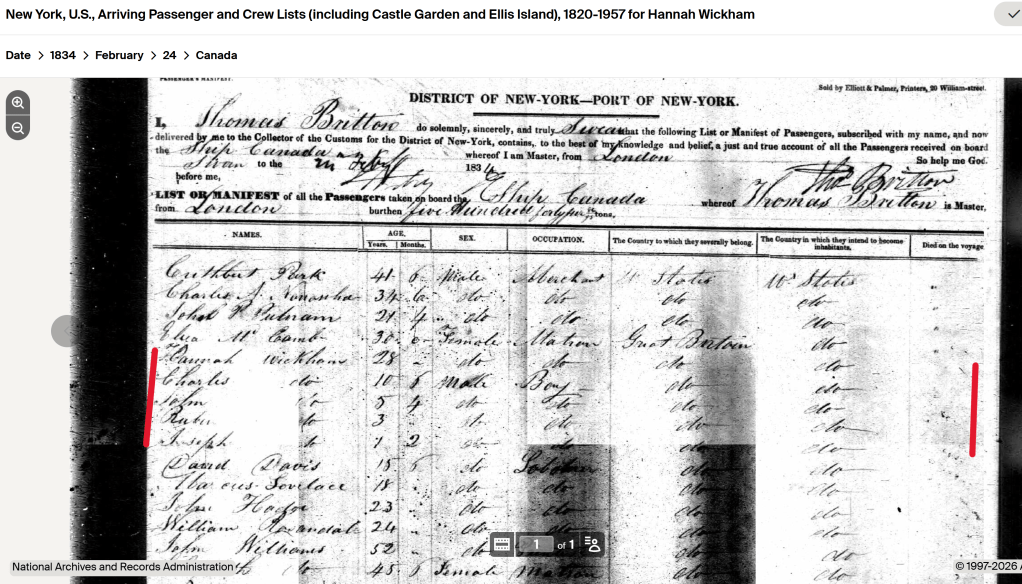 New York, U.S., Arriving Passenger and Crew Lists (including Castle Garden and Ellis Island), 1820-1957 for Hannah Wickham
Date > 1834 > February > 24 > Canada
PASSENGER'S MANIFEST.
Sold by Elliott & Palmer, Printers, 20 William-street.
DISTRICT OF NEW-YORK—PORT OF NEW-YORK.
I, Thomas Britton do solemnly, sincerely, and truly Swear that the following List or Manifest of Passengers, subscribed with my name, and now
delivered by me to the Collector of the Customs for the District of New-York, contains, to the best of my knowledge and belief, a just and true account of all the Passengers received on board
the Ship Canada whereof I am Master, from London
to the 1834 So help me God.
before me, Thos Britton
LIST OR MANIFEST of all the Passengers taken on board the Ship Canada whereof Thomas Britton is Master,
from London burthen five Hundred tons.
NAMES. AGE. SEX. OCCUPATION. The Country to which they severally belong. The Country in which they intend to become inhabitants. Died on the voyage
Years. Months.
Cuthbert Park 41 6 Male Merchant States States
Charles A 34 6 do do do do
John R Putnam 21 4 do do do do
30 Female Matron Great Britain do
Hannah Wickham 28 do do do do
Charles do 10 6 Male Boy do do
John do 5 4 do do do do
do 3 do do do
Joseph do 1 2 do do do do
David Davis 15 6 do do do
Marcus Lovelace 18 do do do
John 23 do do do
William 24 do do do
John Williams 52 do do do
do 45 6 Female Matron do do
1 of 1
National Archives and Records Administration
© 1997-2026